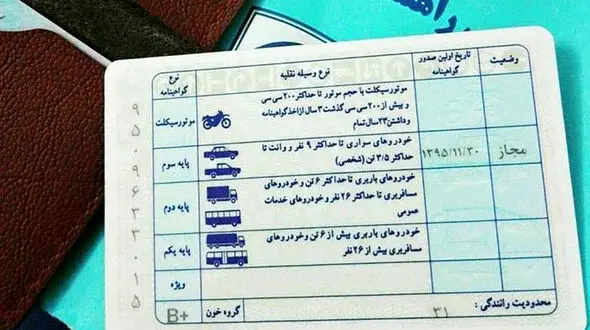 نوع گواهینامه
نوع وسیله نقلیه
تاریخ اولین صدور گواهینامه
وضعیت
موتورسیکلت
موتورسیکلت با حجم موتور تا حداکثر ۲۰۰ سی سی
و بیش از ۲۰۰ سی سی گذشت ۳ سال از اخذ گواهینامه
و داشتن ۲۳ سال تمام
پایه سوم
خودروهای سواری تا حداکثر ۹ نفر و وانت تا
حداکثر ۳/۵ تن (شخصی)
۱۳۹۵/۱۱/۳۰
مجاز
پایه دوم
خودروهای باربری تا حداکثر ۶ تن و خودروهای
مسافربری تا حداکثر ۲۶ نفر و خودروهای خدمات
عمومی
پایه یکم
خودروهای باربری بیش از ۶ تن و خودروهای
مسافربری بیش از ۲۶ نفر
ویژه
B+
گروه خون :
محدودیت رانندگی :
۳۱